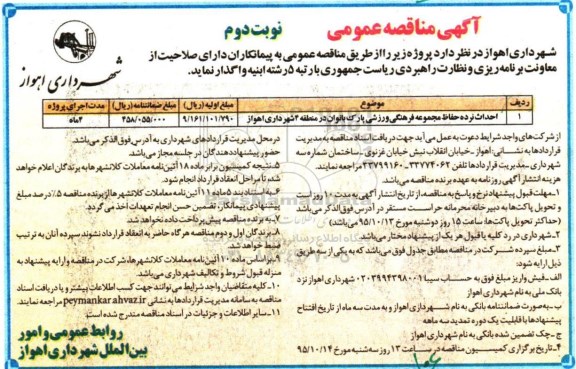 آگهی مناقصه عمومی
نوبت دوم
شهرداری اهواز
شهرداری اهواز در نظر دارد پروژه زیر را از طریق مناقصه عمومی به پیمانکاران دارای صلاحیت از
معاونت برنامه ریزی و نظارت راهبردی ریاست جمهوری با رتبه ۵ رشته ابنیه واگذار نماید.
ردیف موضوع مبلغ اولیه (ریال) مبلغ ضمانتنامه (ریال) مدت اجرای پروژه
۱ احداث نرده حفاظ مجموعه فرهنگی ورزشی پارک بانوان در منطقه ۴ شهرداری اهواز ۹/۱۶۱/۱۰۱/۷۹۰ ۴۵۸/۰۵۵/۰۰۰ ۴ماه
از شرکت‌های واجد شرایط دعوت به عمل می آید جهت دریافت اسناد مناقصه به مدیریت
قراردادها به نشانی: اهواز ـ خیابان انقلاب نبش خیابان غزنوی ـ ساختمان شماره سه
شهرداری ـ مدیریت قراردادها تلفن ۳۳۷۷۴۰۶۲ ـ ۳۳۷۷۹۱۶۰ مراجعه نمایند.
هزینه انتشار آگهی روزنامه به عهده برنده مناقصه می باشد.
۱ـ مهلت قبول پیشنهاد نرخ و پاسخ به مناقصه، از تاریخ انتشار آگهی به مدت ۱۰ روز اداری
و تحویل پاکت‌ها به دبیرخانه محرمانه حراست مستقر در آدرس فوق الذکر می باشد.
(حداکثر تحویل پاکت‌ها ساعت ۱۵ روز دوشنبه مورخ ۹۵/۱۰/۱۳ می باشد).
۲ـ شهرداری در رد کلیه یا قبول هر یک از پیشنهاد مختار می باشد.
۳ـ مبلغ سپرده شرکت در مناقصه مطابق جدول فوق می باشد که به یکی از سه طریق
ذیل ارایه شود:
الف ـ فیش واریز مبلغ فوق به حساب سیبا ۰۲۰۳۹۹۴۳۹۸۰۰۱ شهرداری اهواز نزد
بانک ملی به نام شهرداری اهواز
ب ـ به صورت ضمانتنامه بانکی به نام شهرداری اهواز و به مدت سه ماه از تاریخ افتتاح
پیشنهادها با قابلیت یک دوره تمدید سه ماهه
ج ـ چک تضمین شده بانکی به نام شهرداری اهواز
۴ـ تاریخ برگزاری کمیسیون مناقصه در ساعت ۱۳ روز سه شنبه مورخ ۹۵/۱۰/۱۴
در محل مدیریت قراردادهای شهرداری به آدرس فوق الذکر می باشد.
حضور پیشنهاددهندگان در جلسه مجاز می باشد.
۵ـ نتیجه کمیسیون برابر ماده ۱۸ آئین‌نامه معاملات کلانشهرها به برندگان اعلام خواهد
شد تا مراحل انعقاد قرارداد انجام شود.
۶ـ به استناد بند ۵ ماده ۱۱ آئین‌نامه معاملات کلانشهرها از برنده مناقصه ۵٪ درصد مبلغ
پیشنهادی پیمانکار، تضمین حسن انجام تعهدات اخذ می گردد.
۷ـ به برنده مناقصه پیش پرداخت داده نخواهد شد.
۸ـ برندگان اول و دوم مناقصه هرگاه حاضر به انعقاد قرارداد نشوند سپرده آنان به ترتیب
ضبط خواهد شد.
۹ـ براساس ماده ۱۰ آئین‌نامه معاملات کلانشهرها، شرکت در مناقصه و ارایه پیشنهاد به
منزله قبول شروط و تکالیف شهرداری می باشد.
۱۰ـ کلیه متقاضیان واجد شرایط می توانند جهت کسب اطلاعات بیشتر و یا دریافت اسناد
مناقصه به سامانه مدیریت قراردادها به نشانی peymankar.ahvaz.ir مراجعه نمایند.
۱۱ـ سایر اطلاعات و جزئیات در اسناد مناقصه مندرج شده است.
روابط عمومی و امور
بین الملل شهرداری اهواز